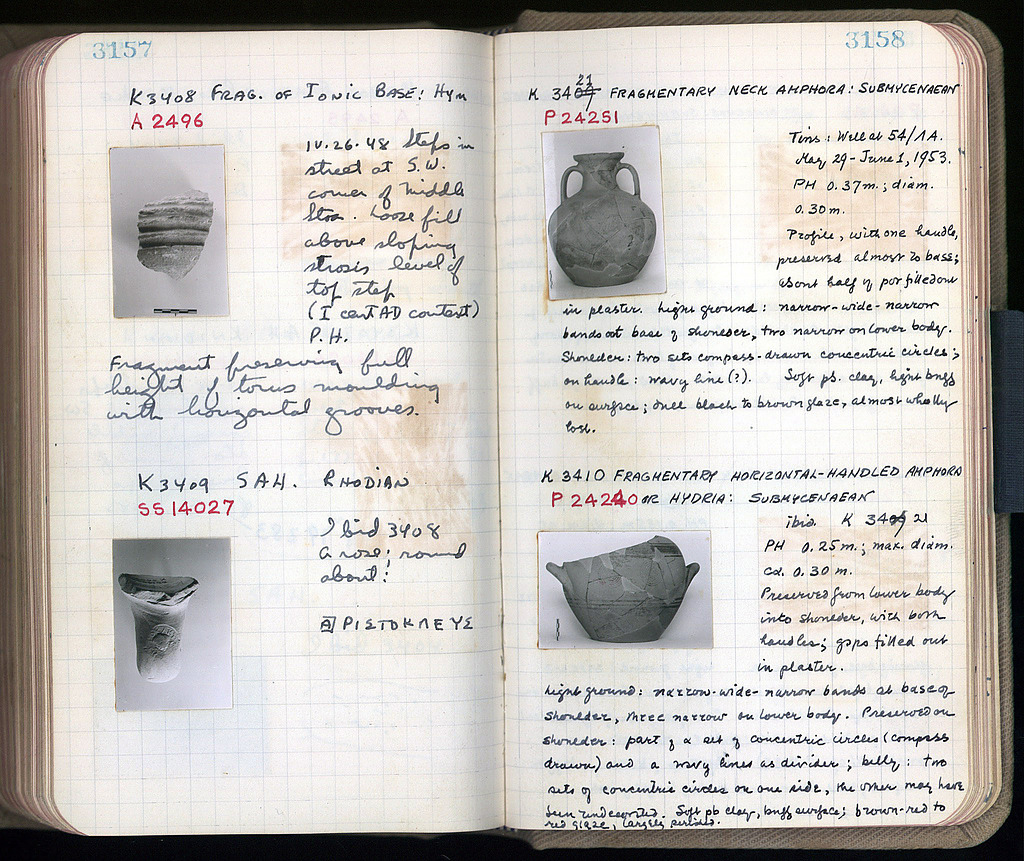 3157
K3408 FRAG. OF IONIC BASE: HYM
A 2496
IV.26.48 Steps in
street at S.W.
corner of Middle
Stoa. Loose fill
above sloping
strosis level of
top step
(I cent AD context)
P.H.
Fragment preserving full
height of torus moulding
with horizontal grooves.
K3409 SAH. RHODIAN
SS14027
Ibid 3408
A rose; round
about:
[A]ΡΙΣΤΟΚΛΕΥΣ
3158
21
K 3409 FRAGMENTARY NECK AMPHORA: SUBMYCENAEAN
P 24251
Tins: Well at 54/ΛΑ.
May 29-June 1, 1953.
PH 0.37m.; diam.
0.30m.
Profile, with one handle,
preserved almost to base;
about half of pot filled out
in plaster. Light ground: narrow-wide-narrow
bands at base of shoulder, two narrow on lower body.
Shoulder: two sets compass-drawn concentric circles;
on handle: wavy line(?). Soft pb. clay, light buff
on surface; dull black to brown glaze, almost wholly
lost.
K 3410 FRAGMENTARY HORIZONTAL-HANDLED AMPHORA
P 24240 OR HYDRIA: SUBMYCENAEAN
ibid. K 3409 21
PH 0.25m.; max. diam.
ca. 0.30m.
Preserved from lower body
into shoulder, with both
handles; gaps filled out
in plaster.
Light ground: narrow-wide-narrow bands at base of
shoulder, three narrow on lower body. Preserved on
shoulder: part of a set of concentric circles (compass
drawn) and a wavy lines as divider; belly: two
sets of concentric circles on one side, the other may have
been undecorated. Soft pb clay, buff surface; brown-red to
red glaze, largely perished.